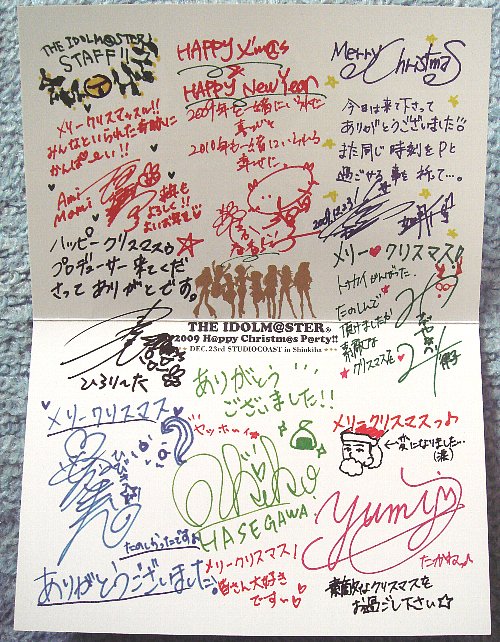 THE IDOLM@STER
STAFF!!
メリークリスマスッ!!!
みんなといられた奇跡に
かんぱーい!!
Ami
Mami
HAPPY X'm@s
&
HAPPY New Year
2009年も一緒にいれた
2010年も一緒にいられる
幸せに
Merry ChristmaS
今日は来て下さって
ありがとうございました!!
また同じ時刻をPと
過ごせる事を祈って…。
2009.12.23
ハッピークリスマス♪
プロデューサー来てくだ
さってありがとです。
ひろりーた
メリー♥クリスマス♪
トナカイがんばった。
たのしんで
頂けましたか
素敵な
クリスマスを
THE IDOLM@STER
2009 H@ppy Christm@s P@rty!!
DEC. 23rd STUDIO COAST in Shinkiba
ありがとう
ございました!!
メリークリスマス
ひびき
たのしかったですっ
ありがとうございました。
ヤッホーィ
Akiko
HASEGAWA
メリークリスマス!
皆さん大好き
ですっ♡
メリークリスマスっ♪
←変になりました…
(涙)
yumi
たかね♪
素敵なクリスマスを
お過ごし下さい☆